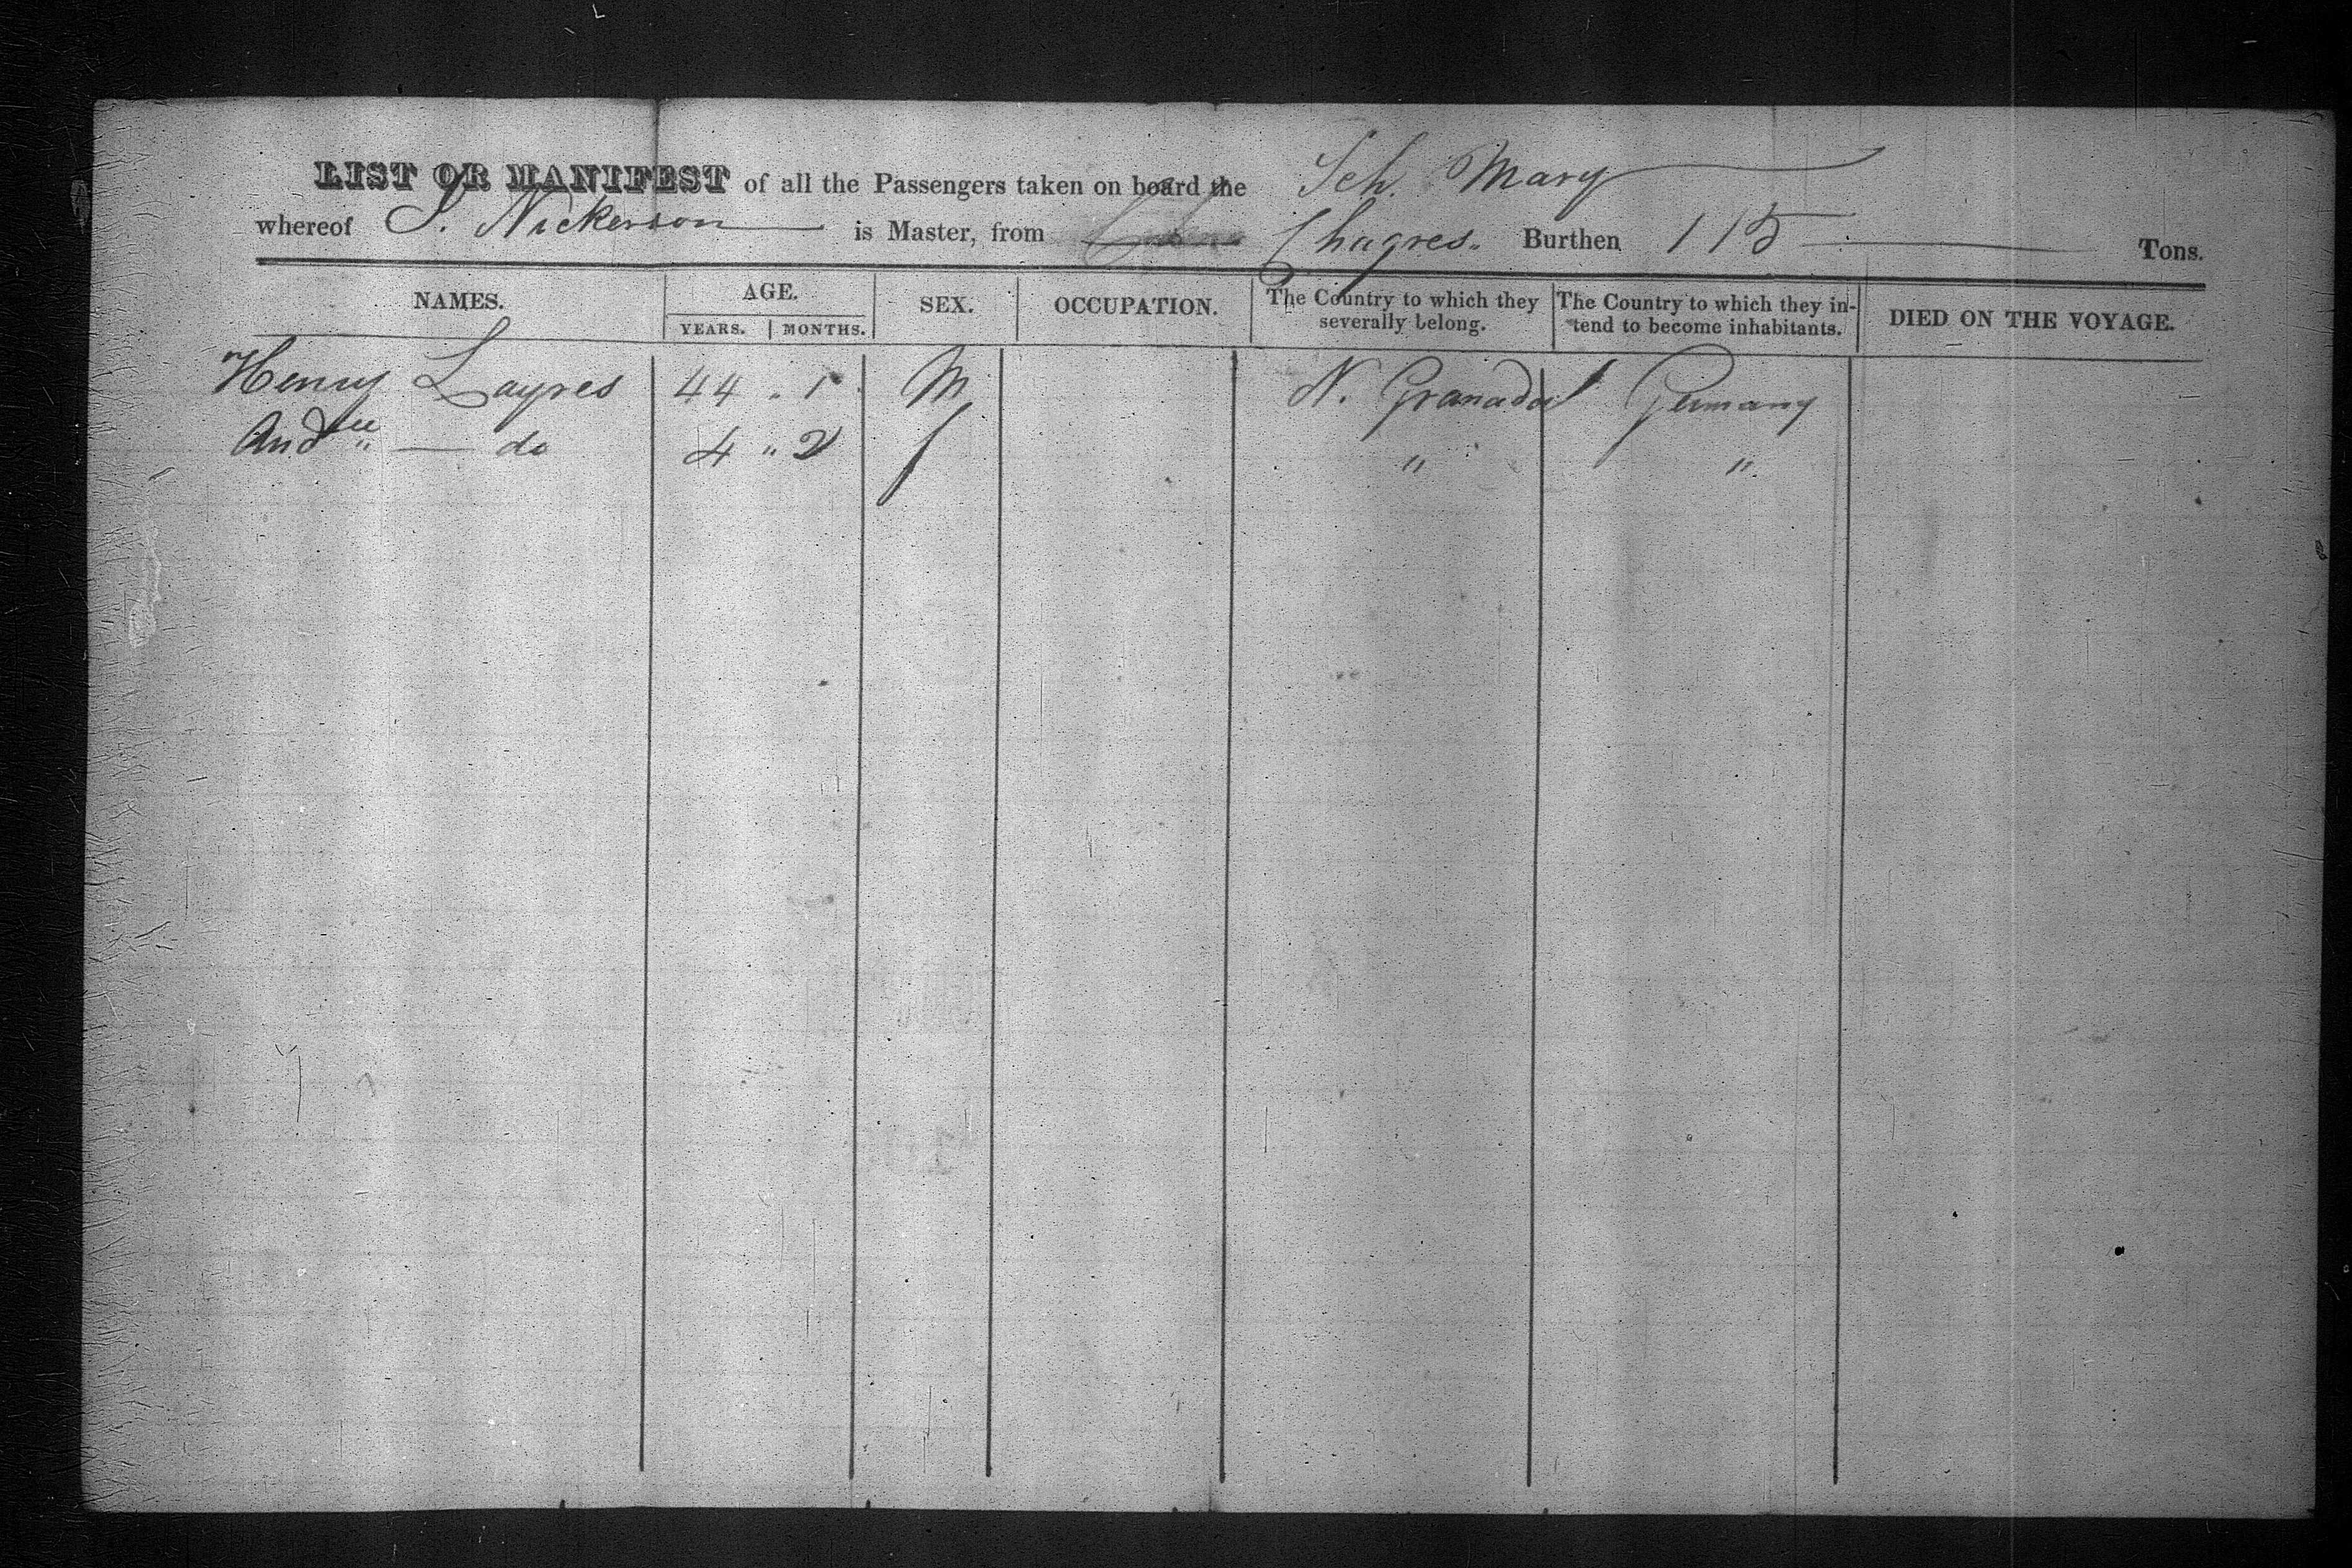 LIST OR MANIFEST of all the Passengers taken on board the Sch. Mary
whereof S. Nickerson is Master, from Chagres. Burthen 115 Tons.
NAMES. AGE. SEX. OCCUPATION. The Country to which they severally belong. The Country to which they intend to become inhabitants. DIED ON THE VOYAGE.
YEARS. MONTHS.
Henry Layres 44 " 1 M N. Granada Germany
do 4 " 2 f " "